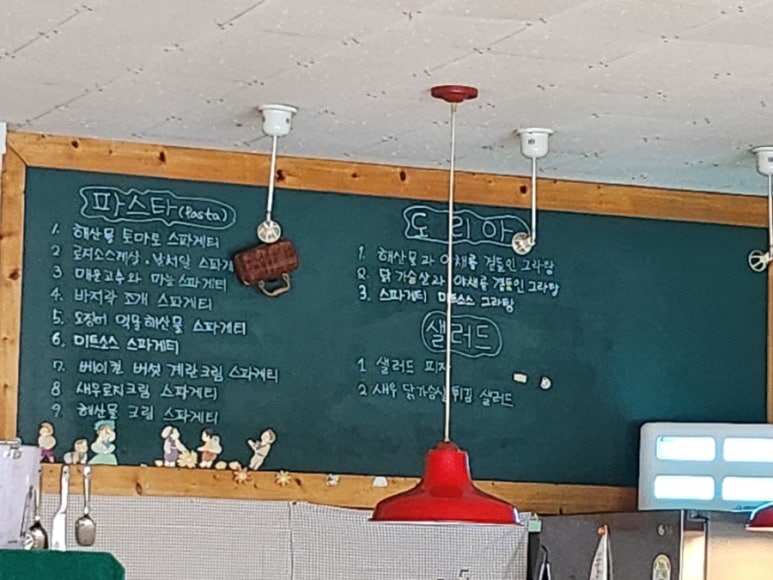 파스타(Pasta)
1. 해산물 토마토 스파게티
2 로지소스게살, 날치알 스파
3 매운고추와 마늘스파게티
4. 바지락 조개 스파게티
5. 오징어 먹물해산물 스파게티
6. 미트소스 스파게티
7. 베이컨 버섯 계란크림 스파게티
8 새우로지크림 스파게티
9 해산물 크림 스파게티
도리아
1. 해산물과 야채를 곁들인 그라탕
2. 닭가슴살과 야채를 곁들인 그라탕
3. 스파게티 미트소스 그라탕
샐러드
1 샐러드 피자
2 새우 닭가슴살튀김 샐러드